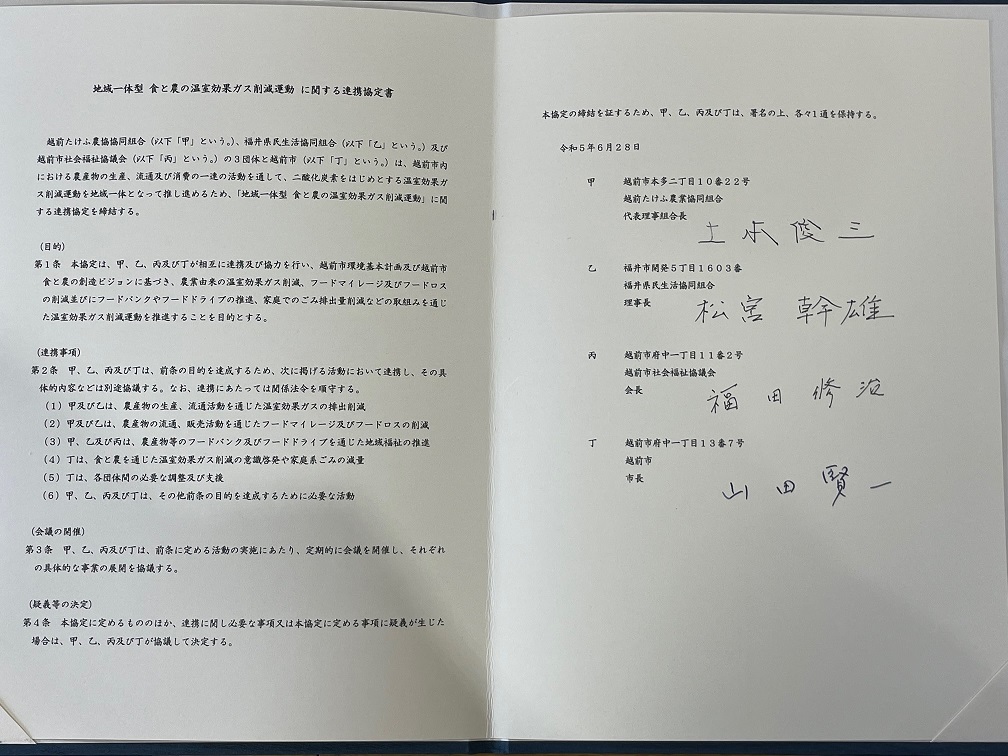 地域一体型 食と農の温室効果ガス削減運動 に関する連携協定書
越前たけふ農協協同組合（以下「甲」という。）、福井県民生活協同組合（以下「乙」という。）及び
越前市社会福祉協議会（以下「丙」という。）の３団体と越前市（以下「丁」という。）は、越前市内
における農産物の生産、流通及び消費の一連の活動を通して、二酸化炭素をはじめとする温室効果ガ
ス削減運動を地域一体となって推し進めるため、「地域一体型 食と農の温室効果ガス削減運動」に関
する連携協定を締結する。
（目的）
第１条　本協定は、甲、乙、丙及び丁が相互に連携及び協力を行い、越前市環境基本計画及び越前市
食と農の創造ビジョンに基づき、農業由来の温室効果ガス削減、フードマイレージ及びフードロス
の削減並びにフードバンクやフードドライブの推進、家庭でのごみ排出量削減などの取組みを通じ
た温室効果ガス削減運動を推進することを目的とする。
（連携事項）
第２条　甲、乙、丙及び丁は、前条の目的を達成するため、次に掲げる活動において連携し、その具
体的内容などは別途協議する。なお、連携にあたっては関係法令を順守する。
（１）甲及び乙は、農産物の生産、流通活動を通じた温室効果ガスの排出削減
（２）甲及び乙は、農産物の流通、販売活動を通じたフードマイレージ及びフードロスの削減
（３）甲、乙及び丙は、農産物等のフードバンク及びフードドライブを通じた地域福祉の推進
（４）丁は、食と農を通じた温室効果ガス削減の意識啓発や家庭系ごみの減量
（５）丁は、各団体間の必要な調整及び支援
（６）甲、乙、丙及び丁は、その他前条の目的を達成するために必要な活動
（会議の開催）
第３条　甲、乙、丙及び丁は、前条に定める活動の実施にあたり、定期的に会議を開催し、それぞれ
の具体的な事業の展開を協議する。
（疑義等の決定）
第４条　本協定に定めるもののほか、連携に関し必要な事項又は本協定に定める事項に疑義が生じた
場合は、甲、乙、丙及び丁が協議して決定する。
本協定の締結を証するため、甲、乙、丙及び丁は、署名の上、各々１通を保持する。
令和５年６月２８日
甲　越前市本多二丁目１０番２２号
越前たけふ農業協同組合
代表理事組合長
土本俊三
乙　福井市開発５丁目１６０３番
福井県民生活協同組合
理事長
松宮 幹雄
丙　越前市府中一丁目１１番２号
越前市社会福祉協議会
会長
福田修治
丁　越前市府中一丁目１３番７号
越前市
市長
山田賢一